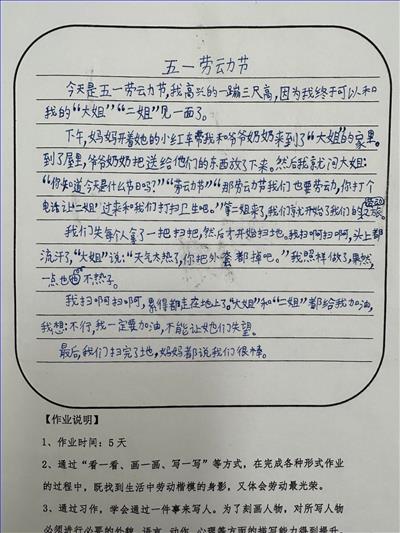 五一劳动节
今天是五一劳动节,我高兴的一蹦三尺高,因为我终于可以和
我的“大姐”“二姐”见一面了。
下午,妈妈开着她的小红车带我和爷爷奶奶来到了“大姐”的家里。
到了屋里,爷爷奶奶把送给他们的东西放了下来。然后我就问大姐:
“你知道今天是什么节日吗?”“劳动节”“那劳动节我们也要劳动,你打个
电话让“二姐”过来和我们打扫卫生吧。”等二姐来了,我们就开始了我们的劳动之旅。
我们先每个人拿了一把扫把,然后才开始扫地。我扫啊扫啊,头上都
流汗了,“大姐”说:“天气太热了,你把外套都掉吧。”我照样做了,果然,
一点也不热了。
我扫啊扫啊,累得都走在地上了。“大姐”和“二姐”都给我加油,
我想:不行,我一定要加油,不能让她们失望。
最后,我们扫完了地,妈妈都说我们很棒。
【作业说明】
1、作业时间:5天
2、通过“看一看、画一画、写一写”等方式,在完成各种形式作业
的过程中,既找到生活中劳动楷模的身影,又体会劳动最光荣。
3、通过习作,学会通过一件事来写人。为了刻画人物,对所写人物
必须进行必要的外貌、语言、动作、心理等方面的描写能力得到提升。